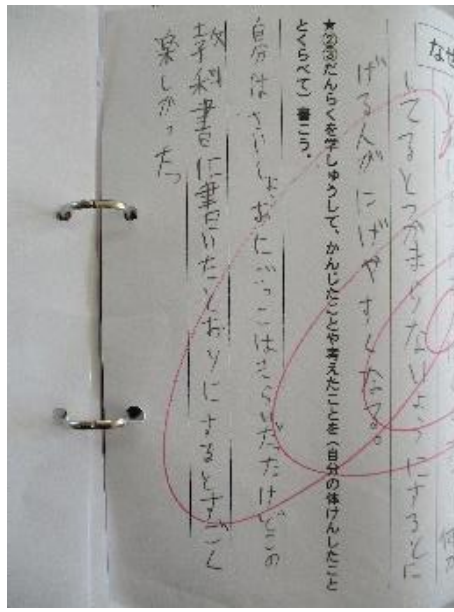 なぜ
いてるとつかまらないようにするとに
げる人がにげやすくなる。
★②③だんらくを学しゅうして、かんじたことや考えたことを(自分の体けんしたこと
とくらべて)書こう。
自分はさいしょおにごっこはきらいだたけどこの
教科書に書いたとおりにするとすごく
楽しかった